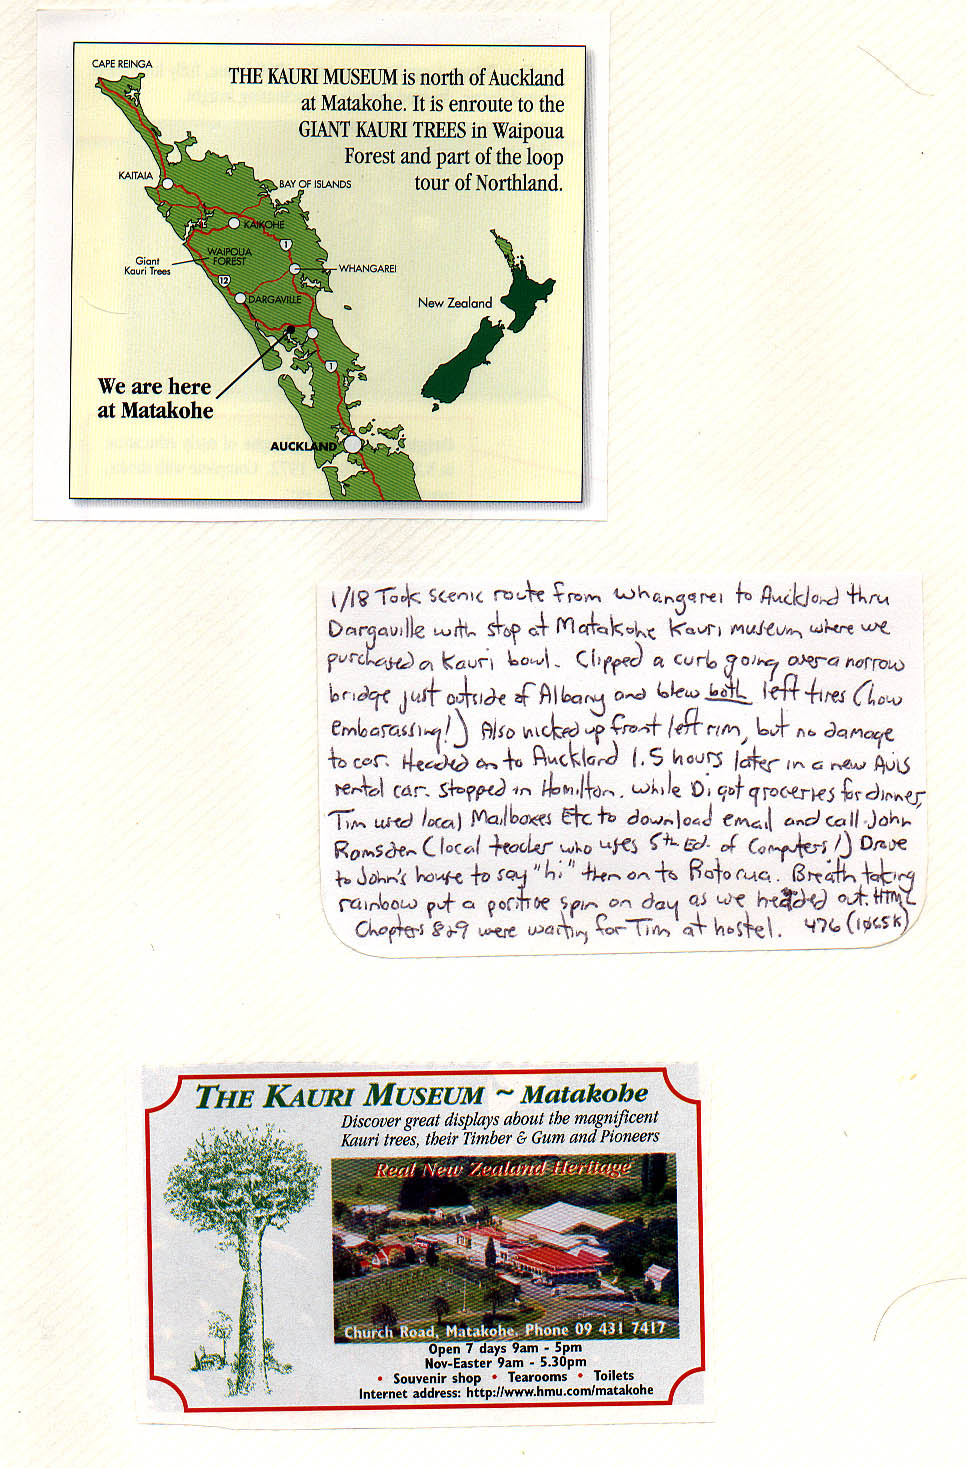 CAPE REINGA
THE KAURI MUSEUM is north of Auckland
at Matakohe. It is enroute to the
GIANT KAURI TREES in Waipoua
Forest and part of the loop
tour of Northland.
KAITAIA
BAY OF ISLANDS
KAIKOHE
1
WAIPOUA
FOREST
Giant
Kauri Trees
WHANGAREI
12
DARGAVILLE
New Zealand
1
We are here
at Matakohe
AUCKLAND
1/18 Took scenic route from Whangarei to Auckland thru
Dargaville with stop at Matakohe Kauri museum where we
purchased a Kauri bowl. Clipped a curb going over a narrow
bridge just outside of Albany and blew both left tires (how
embarassing!) Also nicked up front left rim, but no damage
to car. Headed on to Auckland 1.5 hours later in a new Avis
rental car. Stopped in Hamilton. While Di got groceries for dinner,
Tim used local Mailboxes Etc to download email and call John
Romsden (local teacher who uses 5th Ed. of Computers!) Drove
to John's house to say "hi" then on to Rotorua. Breath taking
rainbow put a positive spin on day as we headed out. HTML
Chapters 8&9 were waiting for Tim at hostel. 476 (1065K)
THE KAURI MUSEUM ~ Matakohe
Discover great displays about the magnificent
Kauri trees, their Timber & Gum and Pioneers
Real New Zealand Heritage
Church Road, Matakohe. Phone 09 431 7417
Open 7 days 9am - 5pm
Nov-Easter 9am - 5.30pm
• Souvenir shop • Tearooms • Toilets
Internet address: http://www.hmu.com/matakohe